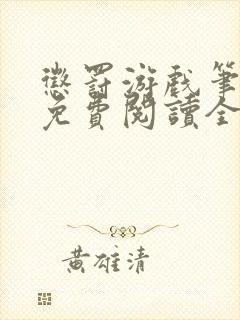 懲罰游戲筆
免費閱讀全
黃雄清